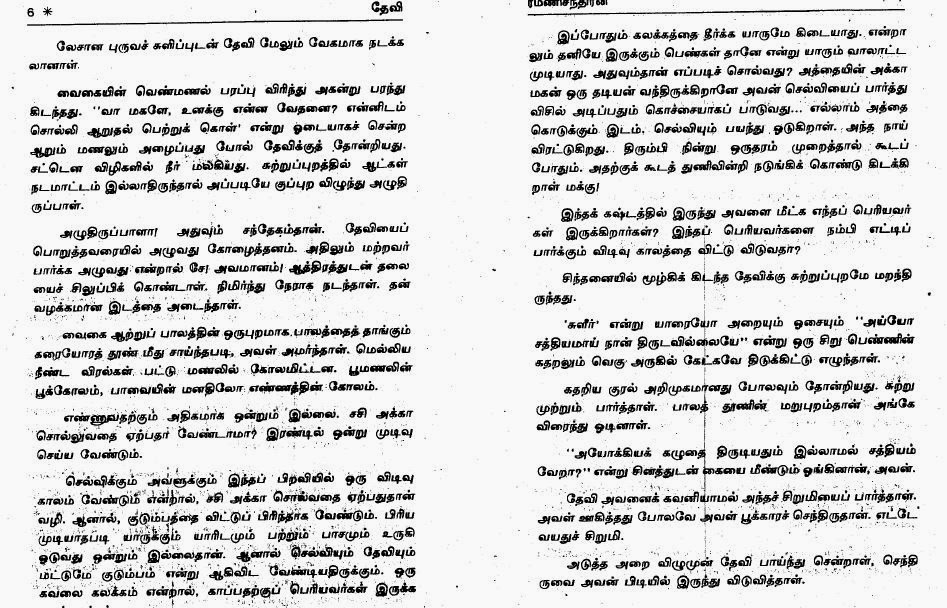 6 * தேவி
லேசான புருவச் சுளிப்புடன் தேவி மேலும் வேகமாக நடக்க
லானாள்.
வைகையின் வெண்மணல் பரப்பு விரிந்து அகன்று பரந்து
கிடந்தது. "வா மகளே, உனக்கு என்ன வேதனை? என்னிடம்
சொல்லி ஆறுதல் பெற்றுக் கொள்' என்று ஓடையாகச் சென்ற
ஆறும் மணலும் அழைப்பது போல் தேவிக்குத் தோன்றியது.
சட்டென விழிகளில் நீர் மல்கியது. சுற்றுப்புறத்தில் ஆட்கள்
நடமாட்டம் இல்லாதிருந்தால் அப்படியே குப்புற விழுந்து அழுதி
ருப்பாள்.
அழுதிருப்பாளா! அதுவும் சந்தேகம்தான். தேவியைப்
பொறுத்தவரையில் அழுவது கோழைத்தனம். அதிலும் மற்றவர்
பார்க்க அழுவது என்றால் சே! அவமானம்! ஆத்திரத்துடன் தலை
யைச் சிலுப்பிக் கொண்டாள். நிமிர்ந்து நேராக நடந்தாள். தன்
வழக்கமான இடத்தை அடைந்தாள்.
வைகை ஆற்றுப் பாலத்தின் ஒருபுறமாக பாலத்தைத் தாங்கும்
கரையோரத் தூண் மீது சாய்ந்தபடி, அவள் அமர்ந்தாள். மெல்லிய
நீண்ட விரல்கள் பட்டு மணலில் கோலமிட்டன. பூமணலின்
பூக்கோலம், பாவையின் மனதிலோ எண்ணத்தின் கோலம்.
எண்ணுவதற்கும் அதிகமாக ஒன்றும் இல்லை. சசி அக்கா
சொல்லுவதை ஏற்பதா வேண்டாமா? இரண்டில் ஒன்று முடிவு
செய்ய வேண்டும்.
செல்விக்கும் அவளுக்கும் இந்தப் பிறவியில் ஒரு விடிவு
காலம் வேண்டும் என்றால், சசி அக்கா சொல்வதை ஏற்பதுதான்
வழி. ஆனால், குடும்பத்தை விட்டுப் பிரிந்தாக வேண்டும். பிரிய
முடியாதபடி யாருக்கும் யாரிடமும் பற்றும் பாசமும் உருகி
ஓடுவது ஒன்றும் இல்லைதான். ஆனால் செல்வியும் தேவியும்
மட்டுமே குடும்பம் என்று ஆகிவிட வேண்டியதிருக்கும். ஒரு
கவலை கலக்கம் என்றால், காப்பதற்குப் பெரியவர்கள் இருக்க
ரமணிசந்திரன்
இப்போதும் கலக்கத்தை தீர்க்க யாருமே கிடையாது. என்றா
லும் தனியே இருக்கும் பெண்கள் தானே என்று யாரும் வாலாட்ட
முடியாது. அதுவும்தான் எப்படிச் சொல்வது? அத்தையின் அக்கா
மகன் ஒரு தடியன் வந்திருக்கிறானே அவன் செல்வியைப் பார்த்து
விசில் அடிப்பதும் கொச்சையாகப் பாடுவது... எல்லாம் அத்தை
கொடுக்கும் இடம். செல்வியும் பயந்து ஓடுகிறாள். அந்த நாய்
விரட்டுகிறது. திரும்பி நின்று ஒருதரம் முறைத்தால் கூடப்
போதும். அதற்குக் கூடத் துணிவின்றி நடுங்கிக் கொண்டு கிடக்கி
றாள் மக்கு!
இந்தக் கஷ்டத்தில் இருந்து அவளை மீட்க எந்தப் பெரியவர்
கள் இருக்கிறார்கள்? இந்தப் பெரியவர்களை நம்பி எட்டிப்
பார்க்கும் விடிவு காலத்தை விட்டு விடுவதா?
சிந்தனையில் மூழ்கிக் கிடந்த தேவிக்கு சுற்றுப்புறமே மறந்தி
ருந்தது.
'சுளீர்' என்று யாரையோ அறையும் ஓசையும் "அய்யோ
சத்தியமாய் நான் திருடவில்லையே" என்று ஒரு சிறு பெண்ணின்
கதறலும் வெகு அருகில் கேட்கவே திடுக்கிட்டு எழுந்தாள்.
கதறிய குரல் அறிமுகமானது போலவும் தோன்றியது. சுற்று
முற்றும் பார்த்தாள். பாலத் தூணின் மறுபுறம்தான் அங்கே
விரைந்து ஓடினாள்.
"அயோக்கியக் கழுதை திருடியதும் இல்லாமல் சத்தியம்
வேறா?" என்று சினத்துடன் கையை மீண்டும் ஓங்கினான், அவன்.
தேவி அவனைக் கவனியாமல் அந்தச் சிறுமியைப் பார்த்தாள்.
அவள் ஊகித்தது போலவே அவள் பூக்காரச் செந்திருதான். எட்டே
வயதுச் சிறுமி.
அடுத்த அறை விழுமுன் தேவி பாய்ந்து சென்றாள், செந்தி
ருவை அவன் பிடியில் இருந்து விடுவித்தாள்.